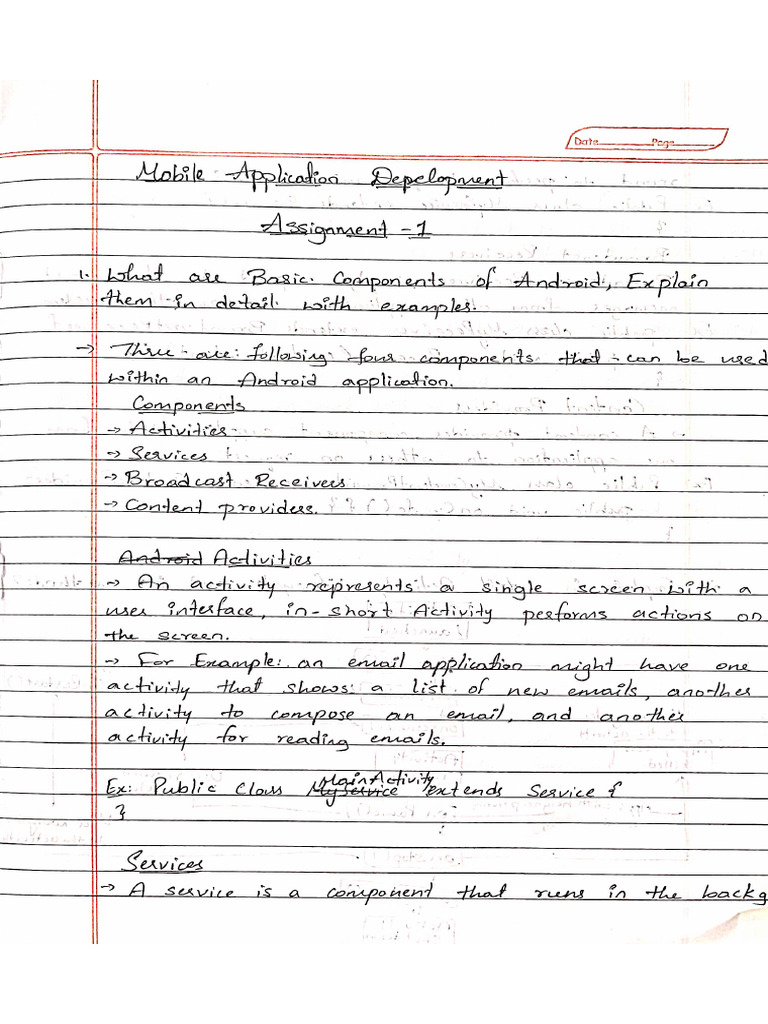 Date Page
Mobile Application Depelopment
Assignment - 1
1. What are Basic Components of Android, Explain
them in detail with examples.
→ Three are following four components that can be used
within an Android application.
Components
→ Activities
→ Services
→ Broadcast Receivers
→ Content providers.
Android Activities
→ An activity represents a single screen with a
user interface, in-short Activity performs actions on
the screen.
→ For Example: an email application might have one
activity that shows a list of new emails, another
activity to compose an email, and another
activity for reading emails.
MainActivity
Ex: Public Class MyService extends Service {
}
Services
→ A service is a component that runs in the backg